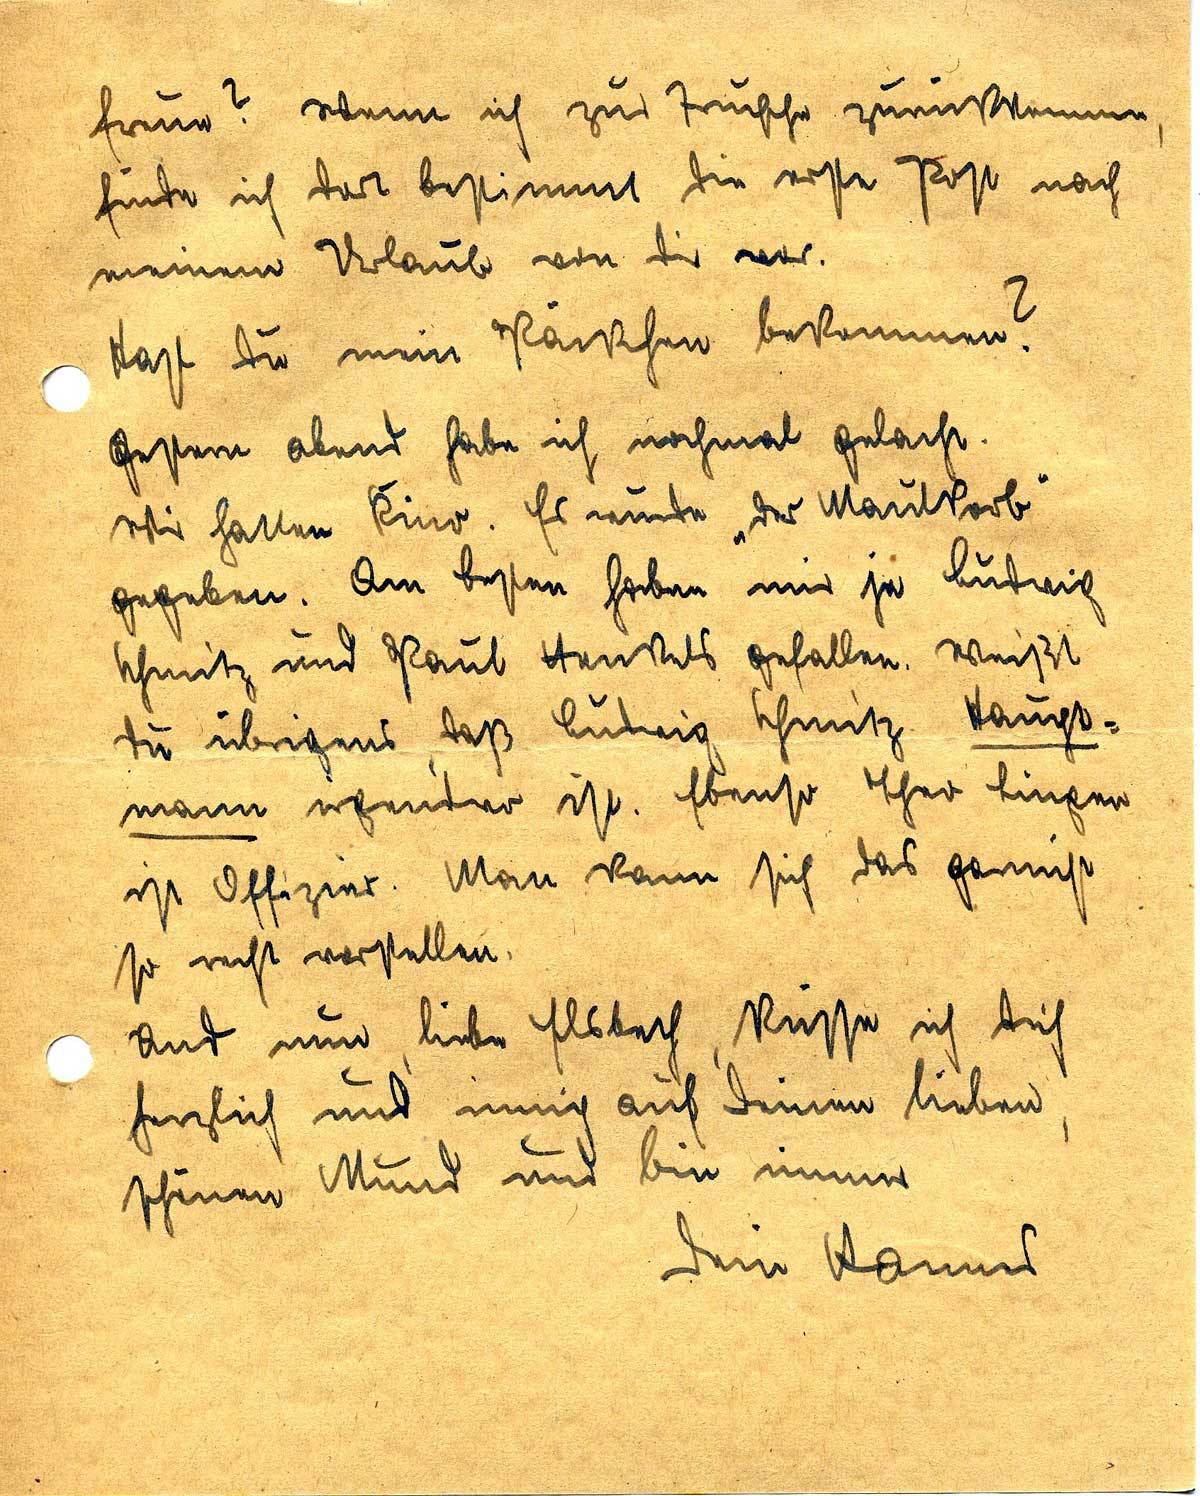 freue? Wenn ich zur Truppe zurückkomme,
finde ich dort bestimmt die erste Post nach
meinem Urlaub von dir vor.
Hast du mein Päckchen bekommen?
Gestern abend habe ich nochmal gelacht.
Wir hatten Kino. Es wurde „der Maulkorb“
gegeben. Am besten haben mir ja Ludwig
Schmitz und Paul Henkels gefallen. Weißt
du übrigens, daß Ludwig Schmitz Haupt=
mann irgendwo ist. Ebenso Theo Lingen
ist Offizier. Man kann sich das garnicht
so recht vorstellen.
Und nun, liebe Elsbeth, küsse ich dich
herzlich und innig auf deinen lieben,
schönen Mund und bin immer
dein Hannes